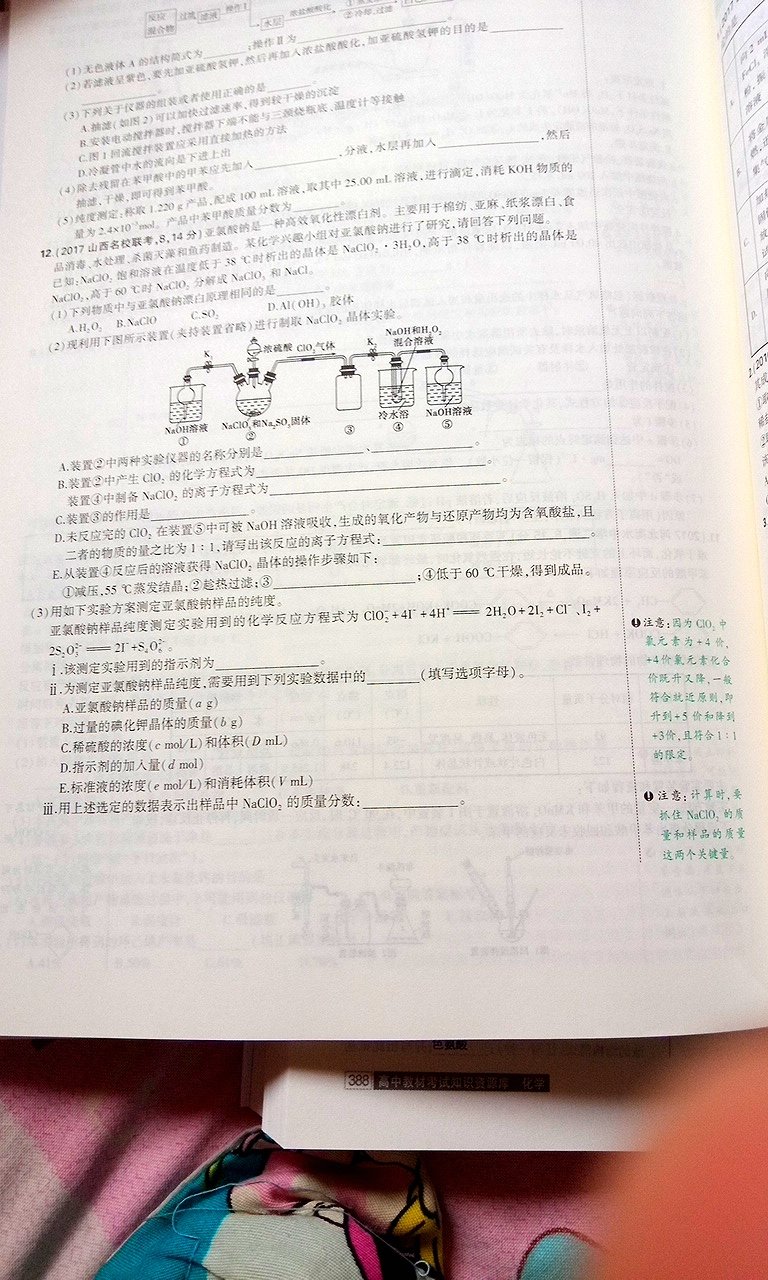 反应
混合物
过滤
滤液
操作Ⅰ
水层
浓盐酸酸化
②冷却,过滤
(1)无色液体 A 的结构简式为________;操作Ⅱ为________。
(2)若滤液呈紫色,要先加亚硫酸氢钾,然后再加入浓盐酸酸化,加亚硫酸氢钾的目的是________
________。
(3)下列关于仪器的组装或者使用正确的是________。
A.抽滤(如图 2)可以加快过滤速率,得到较干燥的沉淀
B.安装电动搅拌器时,搅拌器下端不能与三颈烧瓶底、温度计等接触
C.图 1 回流搅拌装置应采用直接加热的方法
D.冷凝管中水的流向是下进上出
(4)除去残留在苯甲酸中的甲苯应先加入________,分液,水层再加入________,然后
抽滤,干燥,即可得到苯甲酸。
(5)纯度测定:称取 1.220 g 产品,配成 100 mL 溶液,取其中 25.00 mL 溶液,进行滴定,消耗 KOH 物质的
量为 2.4×10⁻³mol。产品中苯甲酸质量分数为________。
12.(2017 山西名校联考,8,14 分)亚氯酸钠是一种高效氧化性漂白剂。主要用于棉纺、亚麻、纸浆漂白、食
品消毒、水处理、杀菌灭藻和鱼药制造。某化学兴趣小组对亚氯酸钠进行了研究,请回答下列问题。
已知:NaClO₂ 饱和溶液在温度低于 38 ℃时析出的晶体是 NaClO₂·3H₂O,高于 38 ℃时析出的晶体是
NaClO₂,高于 60 ℃时 NaClO₂ 分解成 NaClO₃ 和 NaCl。
(1)下列物质中与亚氯酸钠漂白原理相同的是________。
A.H₂O₂ B.NaClO C.SO₂ D.Al(OH)₃ 胶体
(2)现利用下图所示装置(夹持装置省略)进行制取 NaClO₂ 晶体实验。
K₁
浓硫酸
ClO₂气体
K₂
NaOH和H₂O₂
混合溶液
NaOH溶液
NaClO₃和Na₂SO₃固体
冷水浴
NaOH溶液
① ② ③ ④ ⑤
A.装置②中两种实验仪器的名称分别是________、________。
B.装置②中产生 ClO₂ 的化学方程式为________。
装置④中制备 NaClO₂ 的离子方程式为________。
C.装置③的作用是________。
D.未反应完的 ClO₂ 在装置⑤中可被 NaOH 溶液吸收,生成的氧化产物与还原产物均为含氧酸盐,且
二者的物质的量之比为 1∶1,请写出该反应的离子方程式:________。
E.从装置④反应后的溶液获得 NaClO₂ 晶体的操作步骤如下:
①减压,55 ℃蒸发结晶;②趁热过滤;③________;④低于 60 ℃干燥,得到成品。
(3)用如下实验方案测定亚氯酸钠样品的纯度。
亚氯酸钠样品纯度测定实验用到的化学反应方程式为 ClO₂⁻+4I⁻+4H⁺══2H₂O+2I₂+Cl⁻、I₂+
2S₂O₃²⁻══2I⁻+S₄O₆²⁻。
ⅰ.该测定实验用到的指示剂为________。
ⅱ.为测定亚氯酸钠样品纯度,需要用到下列实验数据中的________(填写选项字母)。
A.亚氯酸钠样品的质量(a g)
B.过量的碘化钾晶体的质量(b g)
C.稀硫酸的浓度(c mol/L)和体积(D mL)
D.指示剂的加入量(d mol)
E.标准液的浓度(e mol/L)和消耗体积(V mL)
ⅲ.用上述选定的数据表示出样品中 NaClO₂ 的质量分数:________。
注意:因为 ClO₂ 中
氯元素为+4 价,
+4价氯元素化合
价既升又降,一般
符合就近原则,即
升到+5 价和降到
+3价,且符合 1∶1
的限定。
注意:计算时,要
抓住 NaClO₂ 的质
量和样品的质量
这两个关键量。
388 高中教材考试知识资源库 化学